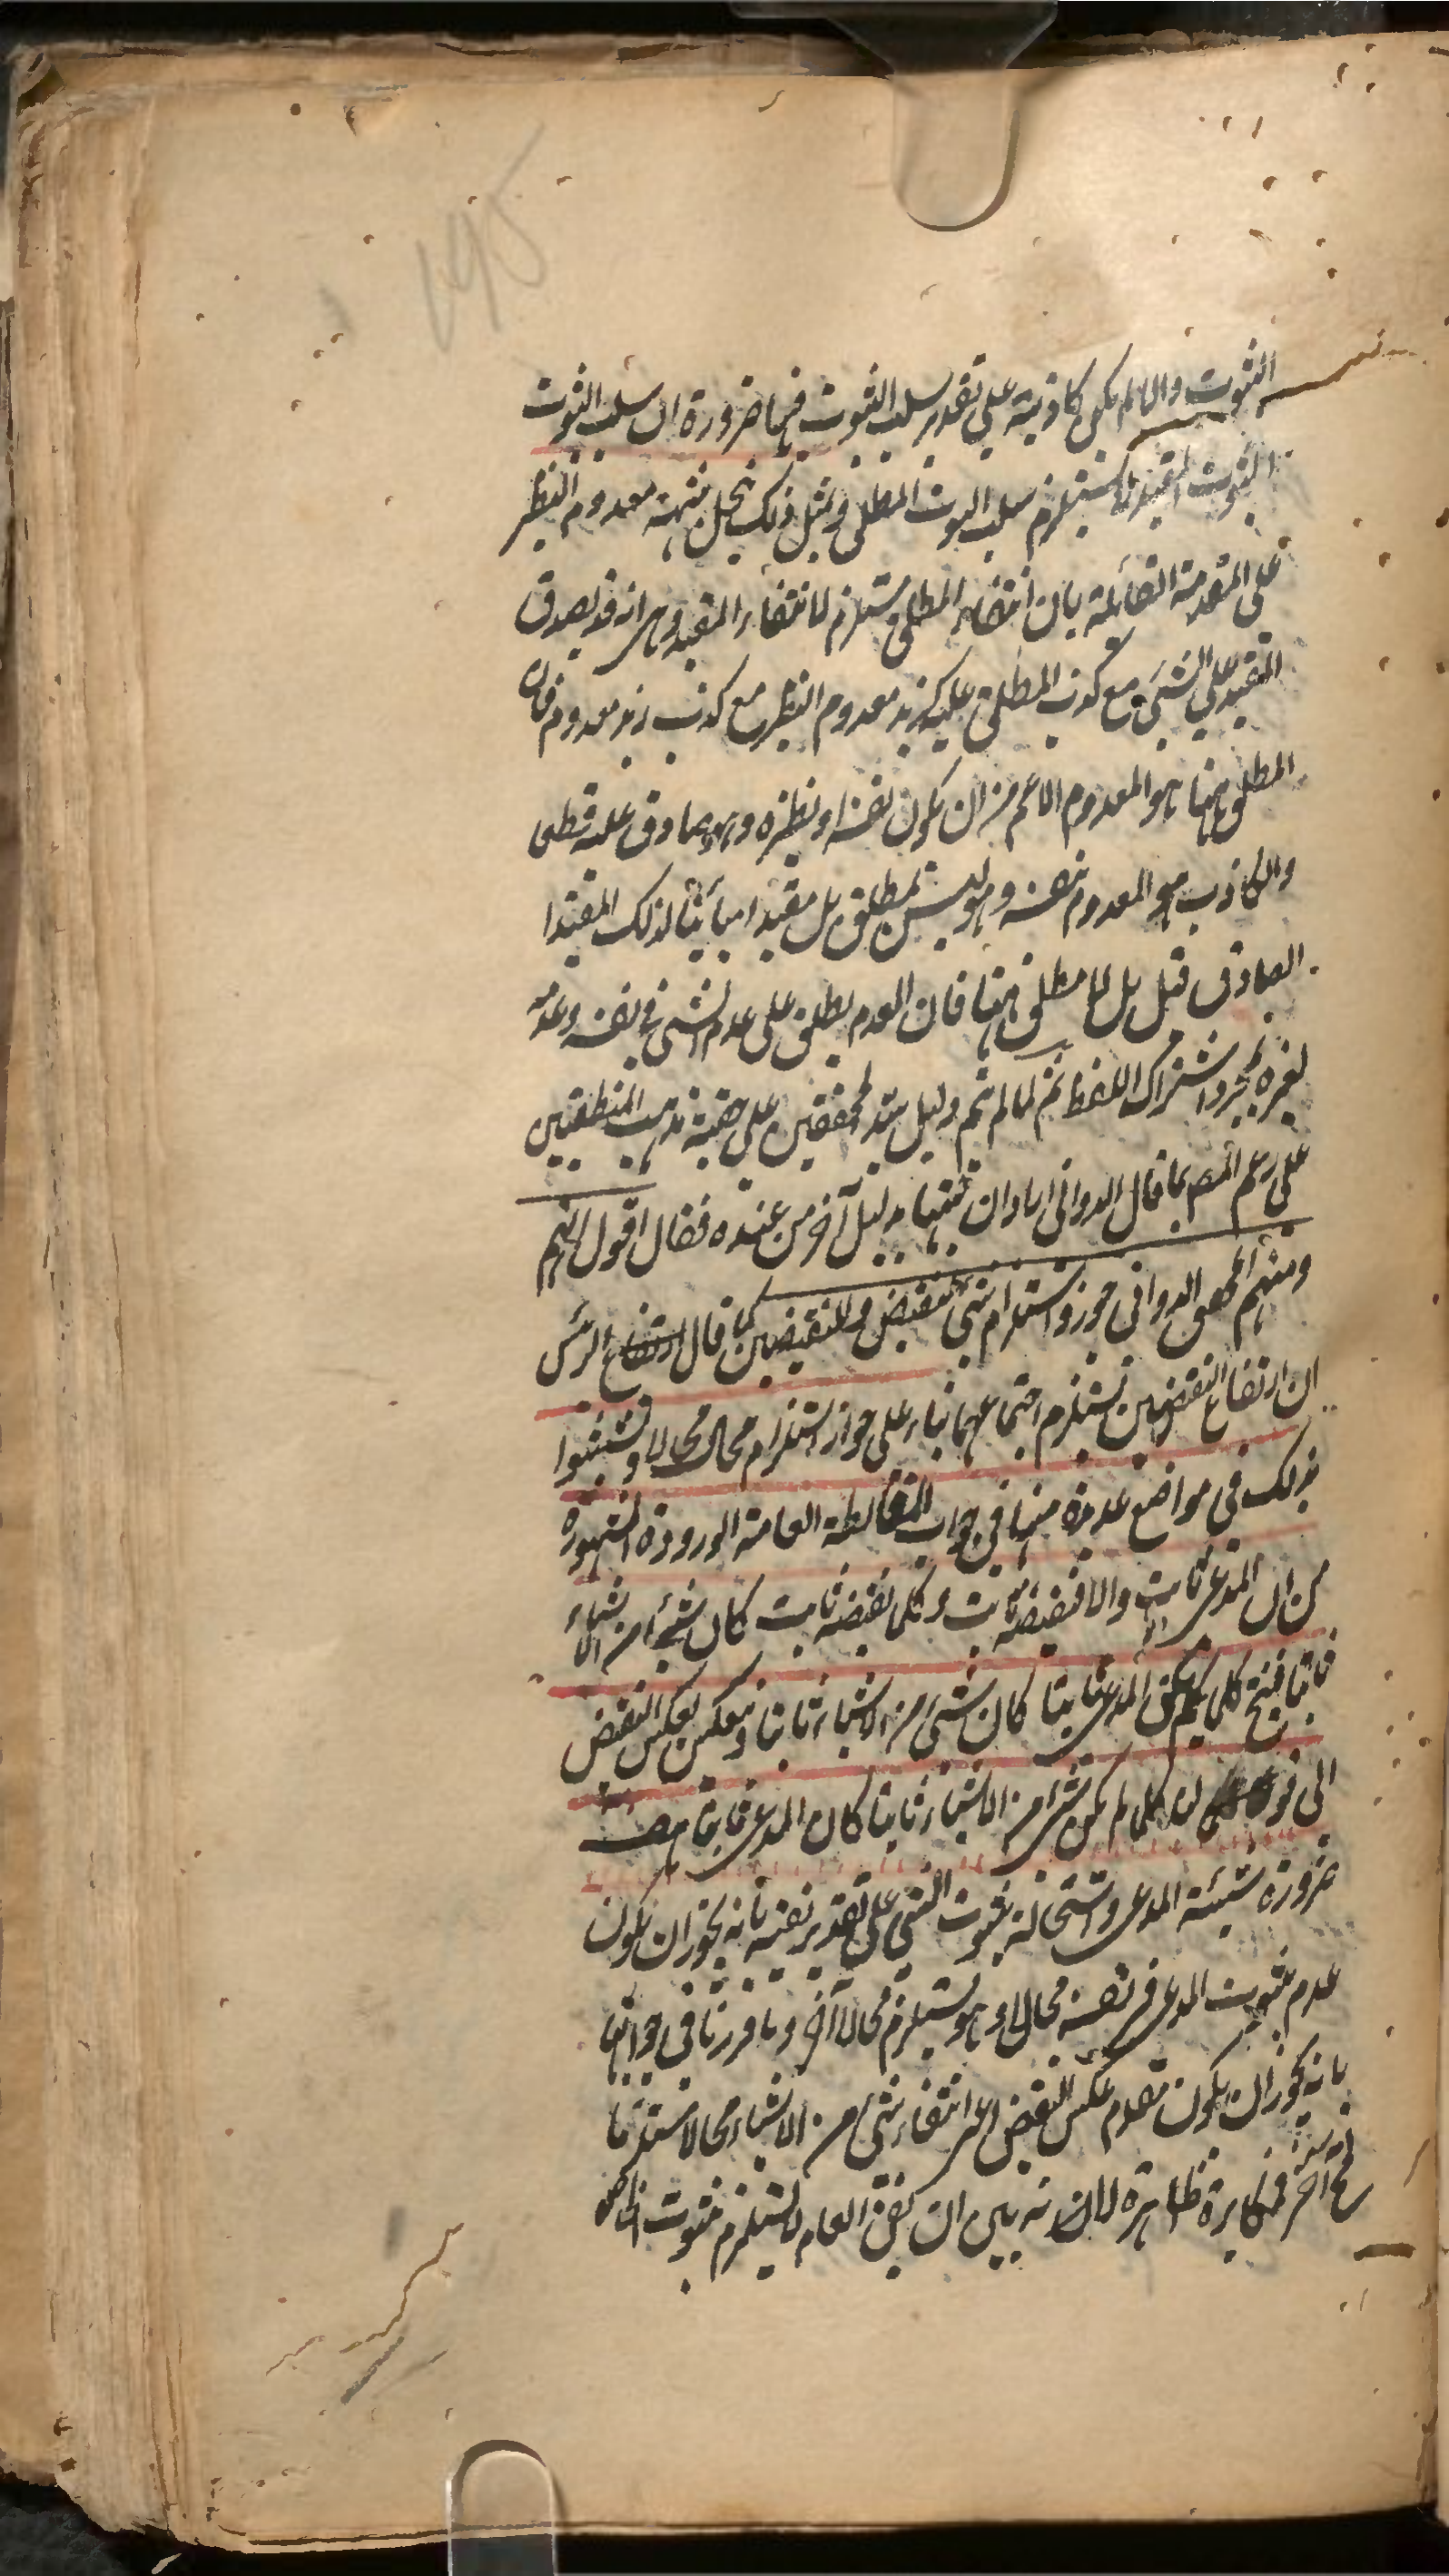 الثبوت والا لم يكن كاذبة على تقدير سلب الثبوت فيها ضرورة ان سلب الثبوت
الثبوت المقيد يستلزم سلب الثبوت المطلق وبمثل ذلك ينحل شبهة معدوم النظير
على المقدمة القائلة بان انتفاء المطلق مستلزم لانتفاء المقيد وهي انه قد يصدق
المقيد على الشيء مع كذب المطلق عليه كزيد معدوم النظير مع كذب زيد معدوم فان
المطلق ههنا هو المعدوم الاعم من ان يكون نفسه او نظيره وهو صادق عليه قطعى
والكاذب هو المعدوم بنفسه وهو ليس بمطلق بل مقيد مباينا لذلك المقيد
الصادق قيل بل لا مطلق ههنا فان العدم يطلق على عدم الشئ في نفسه وعدمه
لغيره بمجرد اشتراك اللفظ ثم لما لم يتم دليل سيد المحققين على حقية مذهب المنطقيين
على زعم المص بما قال الدواني اراد ان يثبتها بدليل آخر من عنده فقال اقول انهم
ومنهم المحقق الدواني جوزوا استلزام شئ لنقيضه وللنقيضين كما قال الرئيس
ان ارتفاع النقيضين يستلزم اجتماعهما بناء على جواز استلزام محال محالا وتشبثوا
بذلك في مواضع عديدة منها في جواب المغالطة العامة الورود المشهورة
من ان المدعى ثابت والا فنقيضه ثابت وكلما نقيضه ثابت كان شئ من الاشياء
ثابتا فينتج كلما لم يكن المدعى ثابتا كان شئ من الاشياء ثابتا وينعكس بعكس النقيض
الى قولنا كلما لم يكن شئ من الاشياء ثابتا كان المدعى ثابتا هف
ضرورة شيئية المدعى واستحالة ثبوت الشئ على تقدير نفيه بانه يجوز ان يكون
عدم ثبوت المدعى في نفسه محالا وهو يستلزم محالا آخر وما قررنا في جوابها
بانه يجوز ان يكون مقدم عكس النقيض اعنى انتفاء شئ من الاشياء محالا مستلزما
آخر مكابرة ظاهرة لانه بين ان نفى العام لا يستلزم ثبوت الخاص